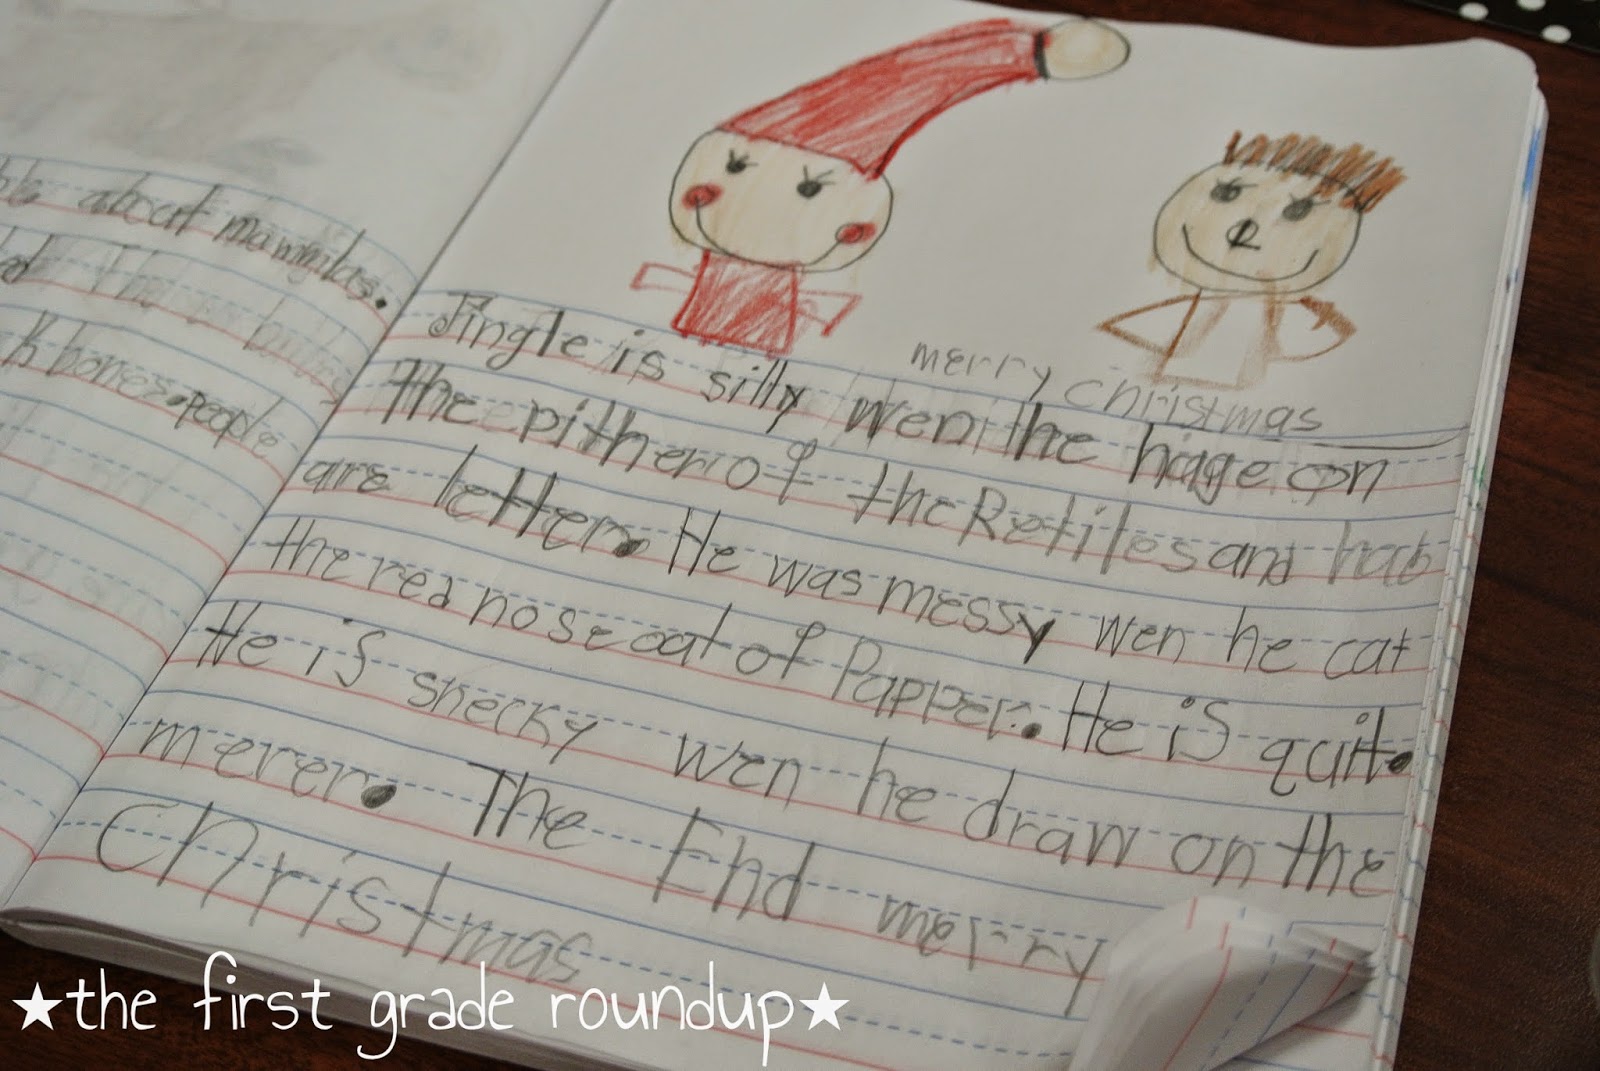 about mammilas.
bones.people
merry christmas
Jingle is silly wen the hage on
the pither of the Retiles and hab
are letter. He was messy wen he cat
the red nose oat of Papper. He is quit.
He is snecky wen he draw on the
merer. The End merry
Christmas
★the first grade roundup★